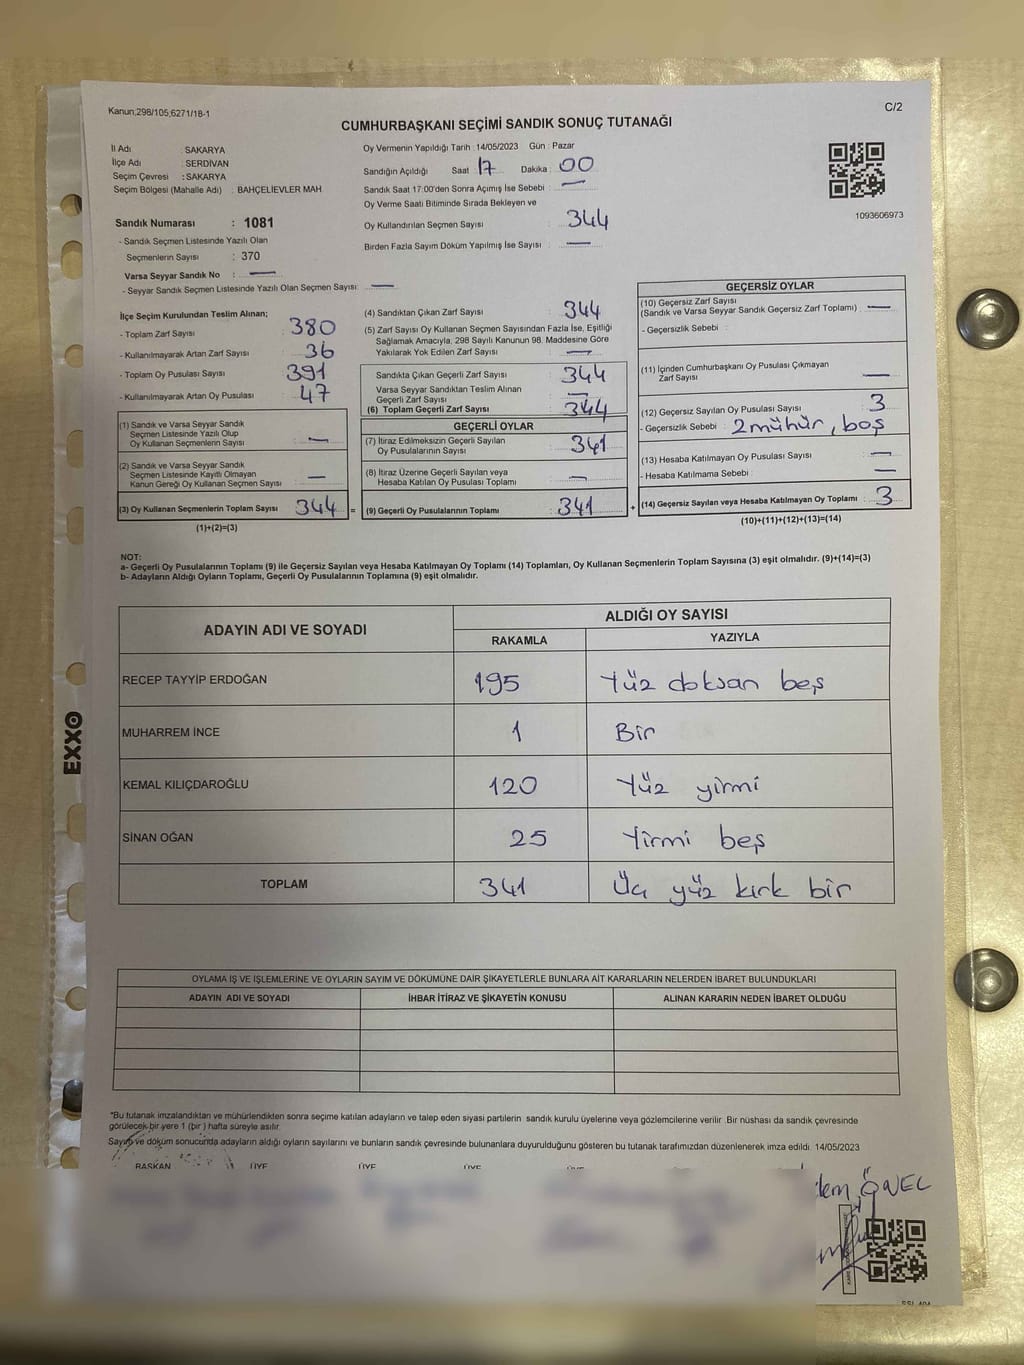 Kanun;298/105,6271/18-1
C/2
CUMHURBAŞKANI SEÇİMİ SANDIK SONUÇ TUTANAĞI
İl Adı SAKARYA
İlçe Adı : SERDİVAN
Seçim Çevresi : SAKARYA
Seçim Bölgesi (Mahalle Adı) : BAHÇELİEVLER MAH
Sandık Numarası : 1081
- Sandık Seçmen Listesinde Yazılı Olan
Seçmenlerin Sayısı : 370
Varsa Seyyar Sandık No : —
- Seyyar Sandık Seçmen Listesinde Yazılı Olan Seçmen Sayısı: —
Oy Vermenin Yapıldığı Tarih : 14/05/2023 Gün : Pazar
Sandığın Açıldığı Saat 17 Dakika 00
Sandık Saat 17:00'den Sonra Açımış İse Sebebi : —
Oy Verme Saati Bitiminde Sırada Bekleyen ve
Oy Kullandırılan Seçmen Sayısı : 344
Birden Fazla Sayım Döküm Yapılmış İse Sayısı : —
1093606973
İlçe Seçim Kurulundan Teslim Alınan;
- Toplam Zarf Sayısı : 380
- Kullanılmayarak Artan Zarf Sayısı : 36
- Toplam Oy Pusulası Sayısı : 391
- Kullanılmayarak Artan Oy Pusulası : 47
(1) Sandık ve Varsa Seyyar Sandık
Seçmen Listesinde Yazılı Olup
Oy Kullanan Seçmenlerin Sayısı : —
(2) Sandık ve Varsa Seyyar Sandık
Seçmen Listesinde Kayıtlı Olmayan
Kanun Gereği Oy Kullanan Seçmen Sayısı : —
(3) Oy Kullanan Seçmenlerin Toplam Sayısı : 344 =
(1)+(2)=(3)
(4) Sandıktan Çıkan Zarf Sayısı : 344
(5) Zarf Sayısı Oy Kullanan Seçmen Sayısından Fazla İse, Eşitliği
Sağlamak Amacıyla, 298 Sayılı Kanunun 98. Maddesine Göre
Yakılarak Yok Edilen Zarf Sayısı : —
Sandıkta Çıkan Geçerli Zarf Sayısı : 344
Varsa Seyyar Sandıktan Teslim Alınan
Geçerli Zarf Sayısı : —
(6) Toplam Geçerli Zarf Sayısı : 344
GEÇERLİ OYLAR
(7) İtiraz Edilmeksizin Geçerli Sayılan
Oy Pusulalarının Sayısı : 341
(8) İtiraz Üzerine Geçerli Sayılan veya
Hesaba Katılan Oy Pusulası Toplamı : —
(9) Geçerli Oy Pusulalarının Toplamı : 341 +
GEÇERSİZ OYLAR
(10) Geçersiz Zarf Sayısı
(Sandık ve Varsa Seyyar Sandık Geçersiz Zarf Toplamı) : —
- Geçersizlik Sebebi :
(11) İçinden Cumhurbaşkanı Oy Pusulası Çıkmayan
Zarf Sayısı : —
(12) Geçersiz Sayılan Oy Pusulası Sayısı : 3
- Geçersizlik Sebebi : 2 mühür, boş
(13) Hesaba Katılmayan Oy Pusulası Sayısı : —
- Hesaba Katılmama Sebebi : —
(14) Geçersiz Sayılan veya Hesaba Katılmayan Oy Toplamı : 3
(10)+(11)+(12)+(13)=(14)
NOT:
a- Geçerli Oy Pusulalarının Toplamı (9) ile Geçersiz Sayılan veya Hesaba Katılmayan Oy Toplamı (14) Toplamları, Oy Kullanan Seçmenlerin Toplam Sayısına (3) eşit olmalıdır. (9)+(14)=(3)
b- Adayların Aldığı Oyların Toplamı, Geçerli Oy Pusulalarının Toplamına (9) eşit olmalıdır.
ADAYIN ADI VE SOYADI
ALDIĞI OY SAYISI
RAKAMLA YAZIYLA
RECEP TAYYİP ERDOĞAN 195 Yüz doksan beş
MUHARREM İNCE 1 Bir
KEMAL KILIÇDAROĞLU 120 Yüz yirmi
SİNAN OĞAN 25 Yirmi beş
TOPLAM 341 Üç yüz kırk bir
OYLAMA İŞ VE İŞLEMLERİNE VE OYLARIN SAYIM VE DÖKÜMÜNE DAİR ŞİKAYETLERLE BUNLARA AİT KARARLARIN NELERDEN İBARET BULUNDUKLARI
ADAYIN ADI VE SOYADI İHBAR İTİRAZ VE ŞİKAYETİN KONUSU ALINAN KARARIN NEDEN İBARET OLDUĞU
"Bu tutanak imzalandıktan ve mühürlendikten sonra seçime katılan adayların ve talep eden siyasi partilerin sandık kurulu üyelerine veya gözlemcilerine verilir. Bir nüshası da sandık çevresinde
görülecek bir yere 1 (bir ) hafta süreyle asılır.
Sayım ve döküm sonucunda adayların aldığı oyların sayılarını ve bunların sandık çevresinde bulunanlara duyurulduğunu gösteren bu tutanak tarafımızdan düzenlenerek imza edildi. 14/05/2023
BAŞKAN ÜYE ÜYE ÜYE
ÖNEL
EXXO